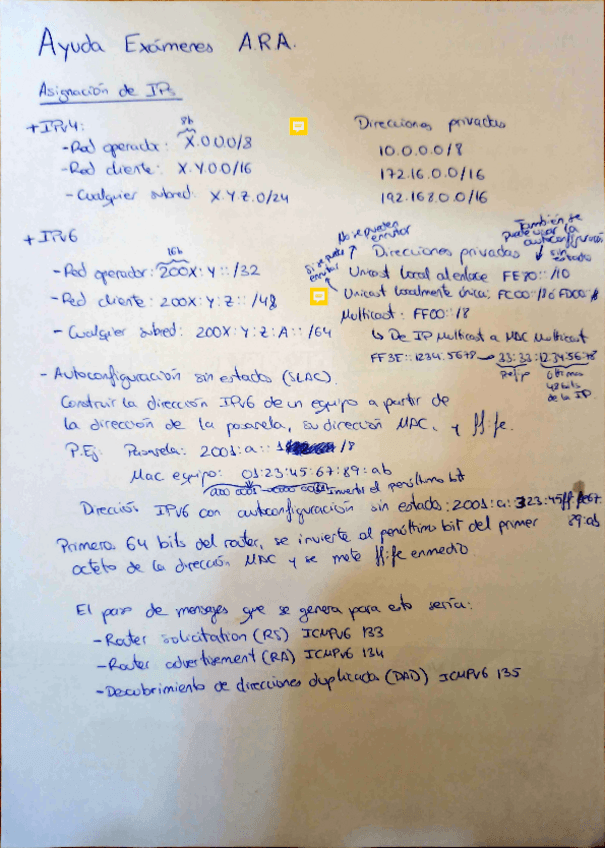 Ayuda Exámenes A.R.A.
Asignación de IPs
+ IPv4:
8b
- Red operador: X.0.0.0/8
- Red cliente: X.Y.0.0/16
- Cualquier subred: X.Y.Z.0/24
Direcciones privadas
10.0.0.0/8
172.16.0.0/16
192.168.0.0/16
+ IPv6
16b
- Red operador: 200X:Y::/32
- Red cliente: 200X:Y:Z::/48
- Cualquier subred: 200X:Y:Z:A::/64
No se pueden enrutar
Si se puede enrutar
También se puede usar la autoconfiguración sin estado
Direcciones privadas
Unicast Local al enlace FE70::/10
Unicast Localmente única: FC00::/8 ó FD00::/8
Multicast: FF00::/8
↳ De IP Multicast a MAC Multicast
FF3E::1234:5678 → 33:33:12:34:56:78
Prefijo
últimos
42 bits
de la IP.
- Autoconfiguración sin estado (SLAC).
Construir la dirección IPv6 de un equipo a partir de
la dirección de la pasarela, su dirección MAC, y ff:fe.
P.Ej: Pasarela: 2001:a::1 /8
Mac equipo: 01:23:45:67:89:ab
Invertir el penúltimo bit
Dirección IPv6 con autoconfiguración sin estado: 2001:a:323:45ff:fe67:
89:ab
Primeros 64 bits del router, se invierte el penúltimo bit del primer
octeto de la dirección MAC y se mete ff:fe enmedio
El paso de mensajes que se genera para esto sería:
- Router solicitation (RS) ICMPv6 133
- Router advertisement (RA) ICMPv6 134
- Descubrimiento de direcciones duplicadas (DAD) ICMPv6 135